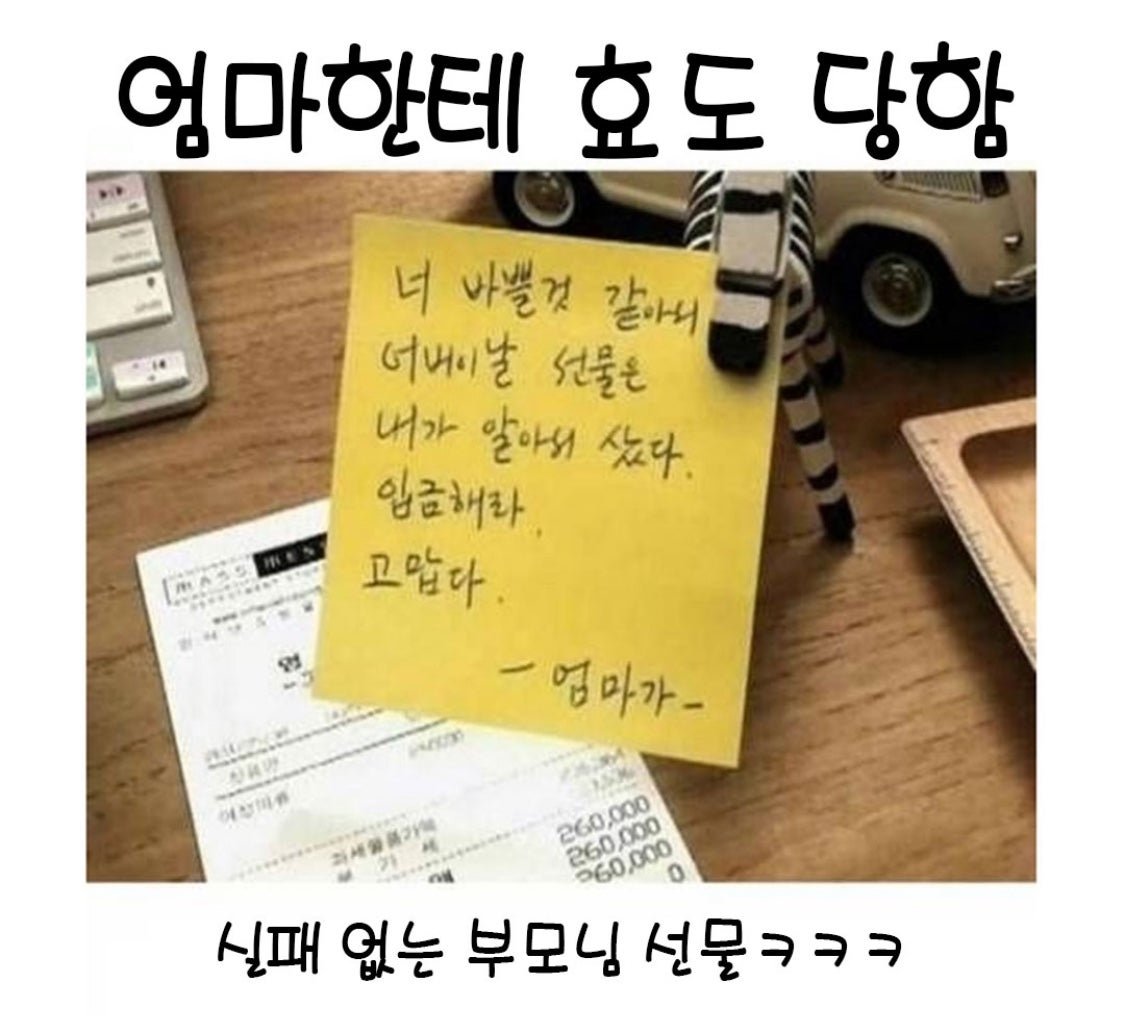 엄마한테 효도 당함
너 바쁠것 같아서
어버이날 선물은
내가 알아서 샀다.
입금해라.
고맙다.
- 엄마가 -
MASS
과세물품가액
부 가 세
260,000
260,000
260,000
0
실패 없는 부모님 선물ㅋㅋㅋ